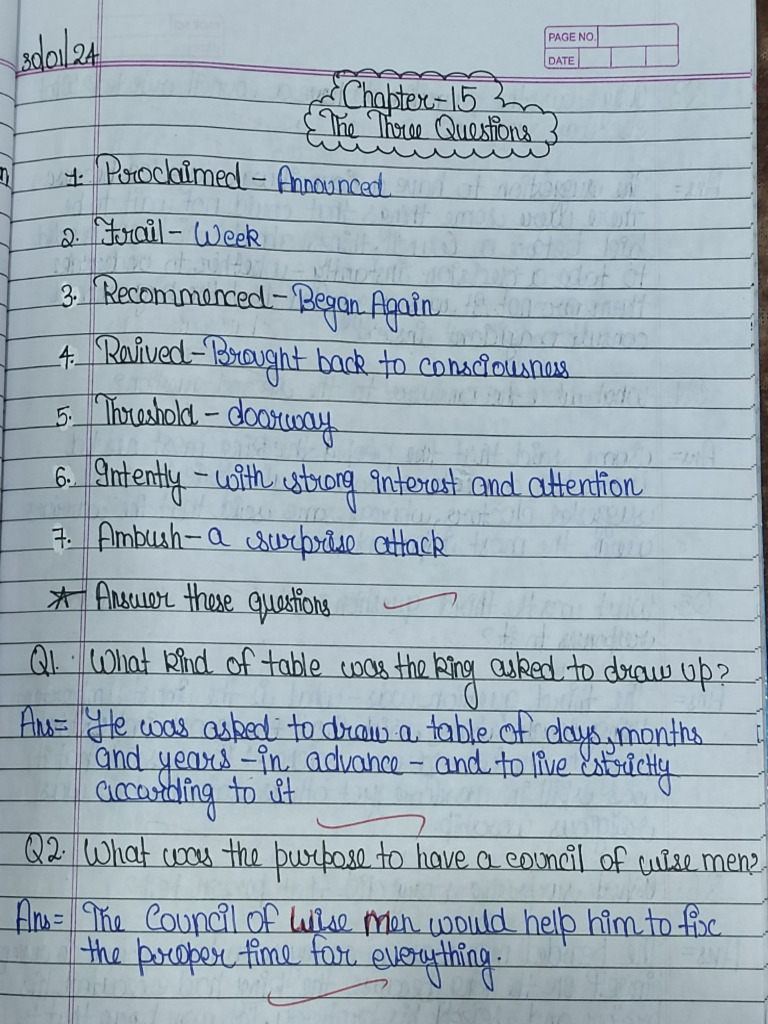 30/01/24
PAGE NO.
DATE
Chapter-15
The Three Questions
1. Proclaimed - Announced
2. Frail - Week
3. Recommenced - Began Again
4. Revived - Brought back to consciousness
5. Threshold - doorway
6. Intently - with strong interest and attention
7. Ambush - a surprise attack
* Answer these questions
Q1. What kind of table was the king asked to draw up?
Ans= He was asked to draw a table of days, months
and years - in advance - and to live strictly
according to it
Q2. What was the purpose to have a council of wise men?
Ans= The Council of Wise Men would help him to fix
the proper time for everything.